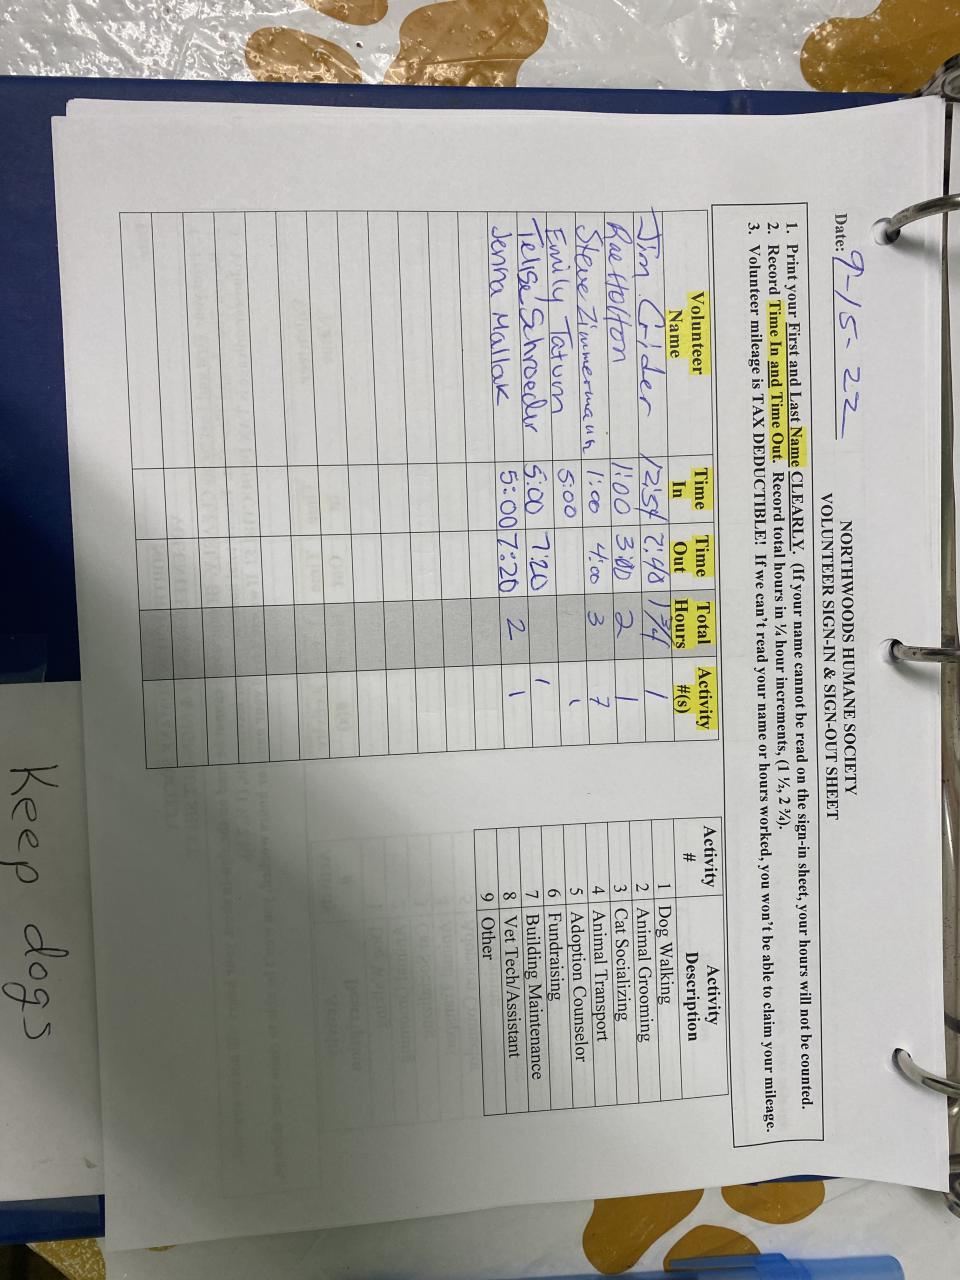 NORTHWOODS HUMANE SOCIETY
VOLUNTEER SIGN-IN & SIGN-OUT SHEET
Date: 9-15-22
1. Print your First and Last Name CLEARLY. (If your name cannot be read on the sign-in sheet, your hours will not be counted.
2. Record Time In and Time Out. Record total hours in ¼ hour increments, (1 ½, 2 ¾).
3. Volunteer mileage is TAX DEDUCTIBLE! If we can't read your name or hours worked, you won't be able to claim your mileage.
Volunteer Name Time In Time Out Total Hours Activity #(s)
Jim Crider 12:54 2:40 1 3/4 1
Rae Holton 1:00 3:00 2 1
Steve Zimmermann 1:00 4:00 3 7
Emily Tatum 5:00 1
Telise Schroeder 5:00 7:20 1
Jenna Mallak 5:00 7:20 2 1
Activity # Activity Description
1 Dog Walking
2 Animal Grooming
3 Cat Socializing
4 Animal Transport
5 Adoption Counselor
6 Fundraising
7 Building Maintenance
8 Vet Tech/Assistant
9 Other
Keep dogs